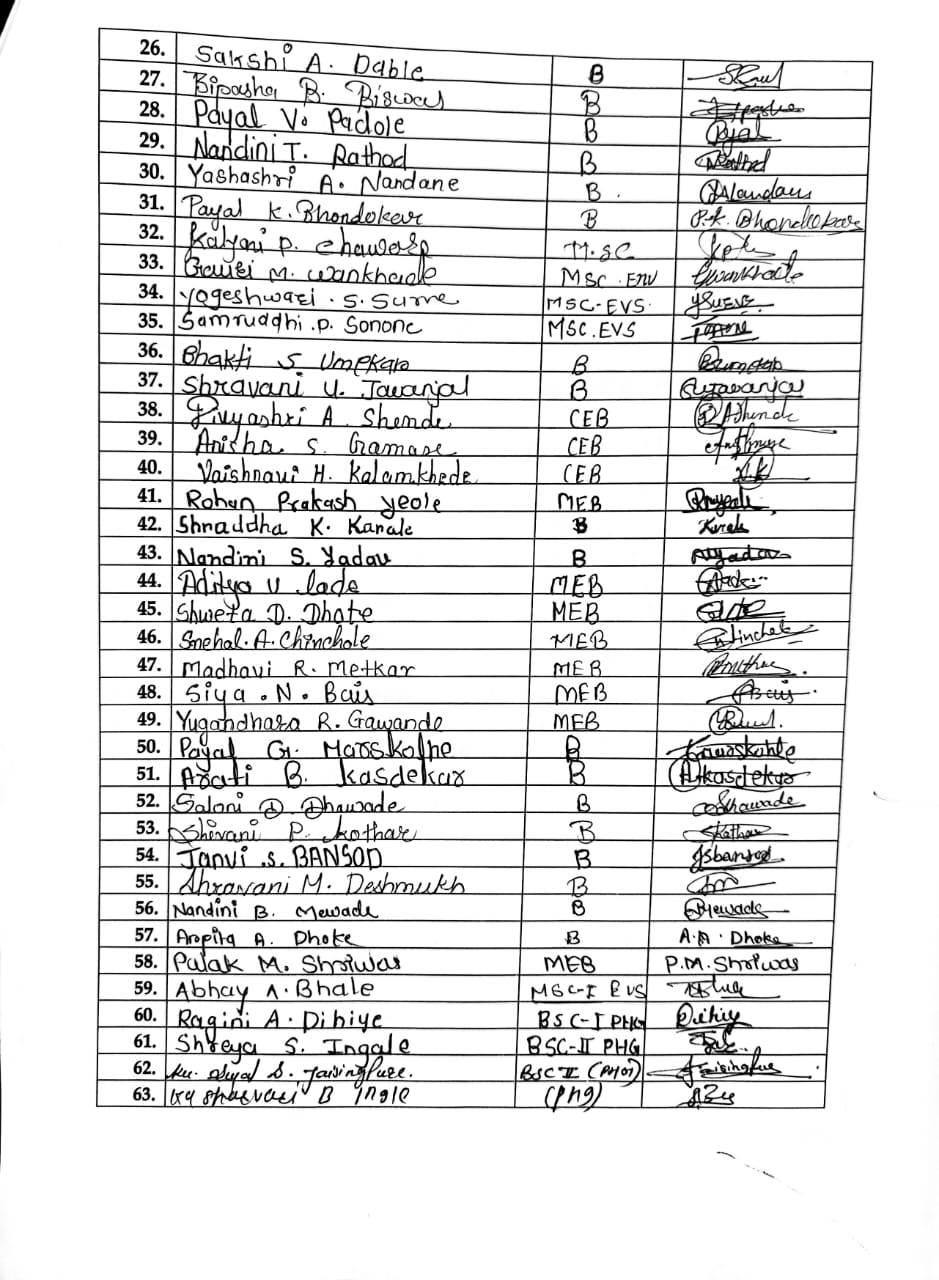 26. Sakshi A. Dable B
27. Bipasha B. Biswas B
28. Payal V. Padole B Payal
29. Nandini T. Rathod B Rathod
30. Yashashri A. Nandane B.
31. Payal K. Bhondekar B P.K. Bhondekar
32. Kalyani P. M.SC
33. Gauri M. Wankhade MSC.ENV Gwankhade
34. Yogeshwari . S. Surve MSC-EVS. YSurve
35. Samruddhi .P. Sonone MSC.EVS
36. Bhakti S Umekar B
37. Shravani U. Jawanjal B
38. Divyashri A Shende CEB
39. Anisha S. Gramase CEB
40. Vaishnavi H. Kalamkhede CEB V.K
41. Rohan Prakash Yeole MEB
42. Shraddha K. Kanale B
43. Nandini S. Yadav B NYadav
44. Aditya U. lade MEB
45. Shweta D. Dhote MEB
46. Snehal. A. Chinchole MEB
47. Madhavi R. Metkar MEB
48. Siya . N . Bais MEB Bais
49. Yugandhara R. Gawande MEB
50. Payal G. Marskolhe B
51. Arati B. Kasdekar B AKasdekar
52. Saloni D. Dhawade B Dhawade
53. Shivani P. Kothar B SKothar
54. Janvi .S. BANSOD B JSbansod
55. Shravani M. Deshmukh B
56. Nandini B. Mewade B Mewade
57. Arpita A. Dhoke B A.A. Dhoke
58. Palak M. Shriwas MEB P.M. Shriwas
59. Abhay A. Bhale MSC-I EVS
60. Ragini A. Dihiye BSC-I PHG Dihiy
61. Shreya S. Ingale BSC-II PHG
62. Ku. S. Jaisingpure. BSC II Jaisingpure
63. B Ingle (phg)